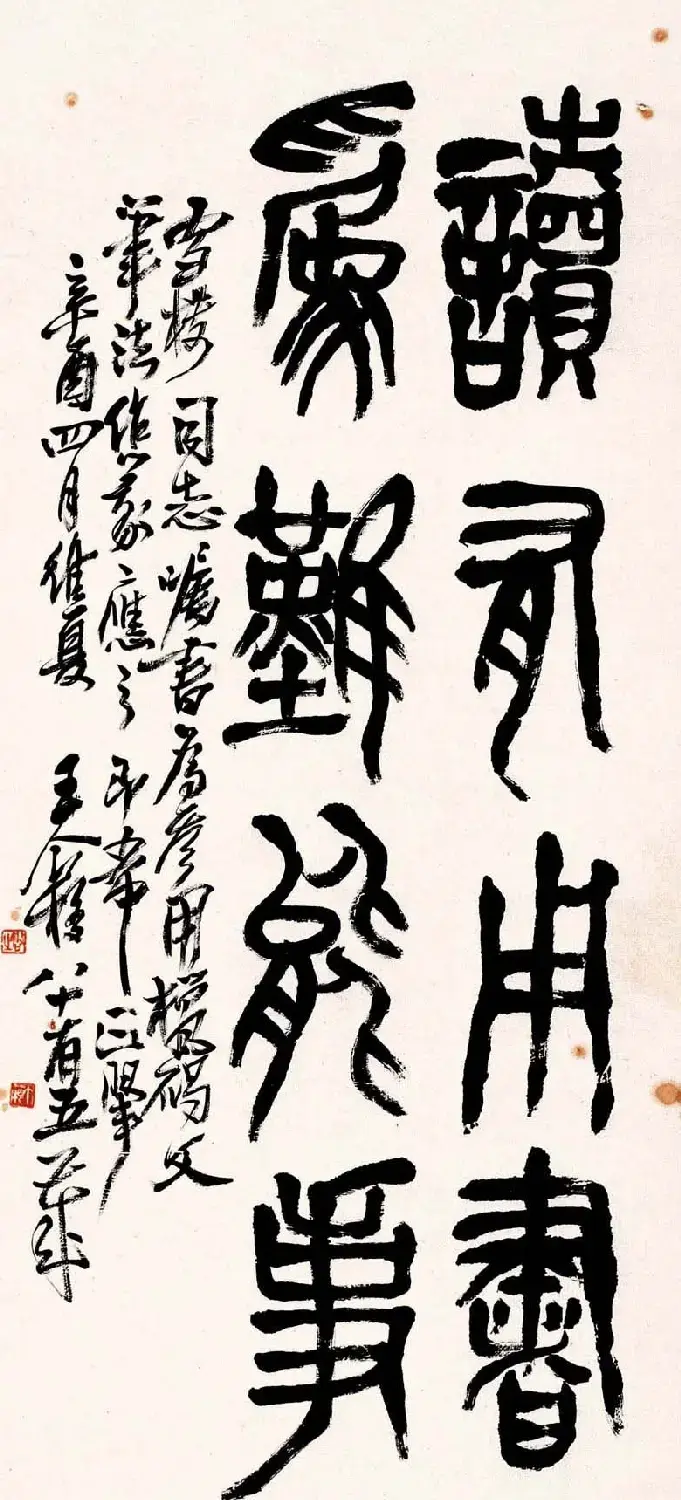 讀有用書
為難能事
雪樓同志囑書為參用獵碣文
筆法作篆應之即希正
辛酉四月維夏王个簃八十有五歲